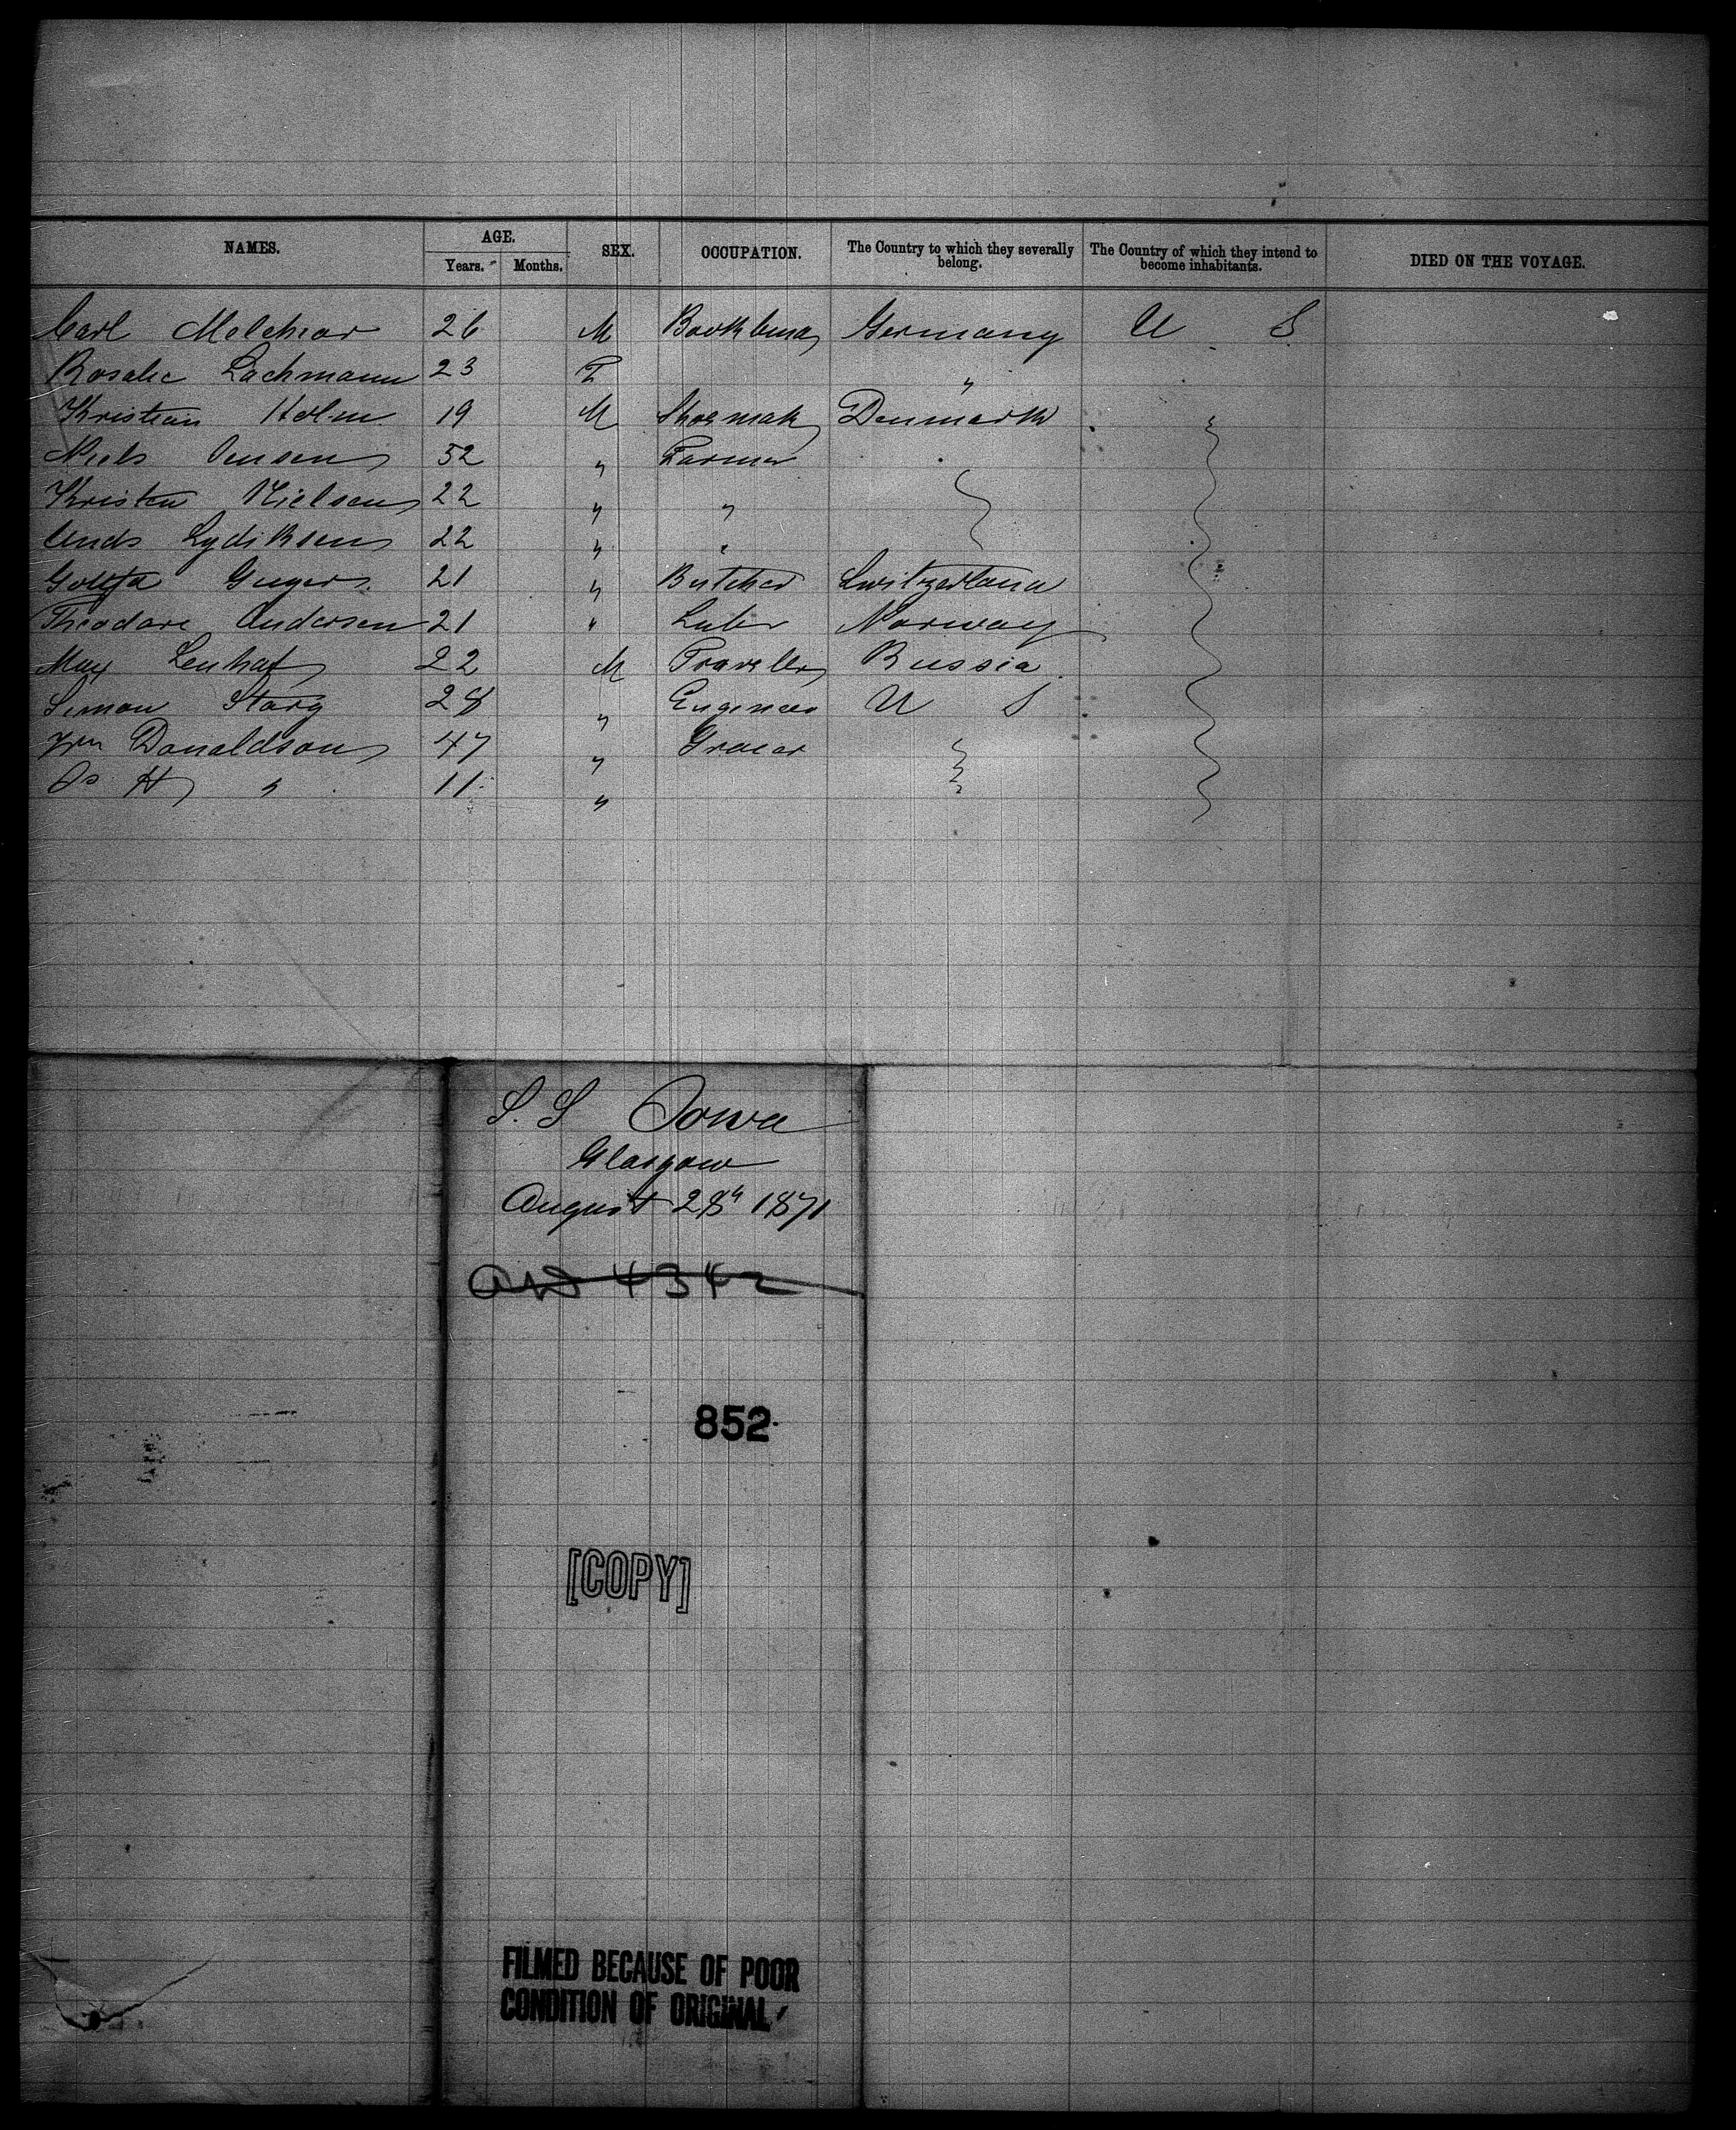 NAMES. AGE. SEX. OCCUPATION. The Country to which they severally belong. The Country of which they intend to become inhabitants. DIED ON THE VOYAGE.
Years. Months.
Carl Melchior 26 M Bookbind Germany U S
Rosalie Lachmann 23 F "
Kristian Holm 19 M Shoemak Denmark
Niels Jensen 52 " Farmer
Kristen Nielsen 22 " "
Ands Lydiksen 22 " "
21 " Butcher Switzerland
Theodore Andersen 21 " Labr Norway
Max 22 M Traveller Russia
Simon 28 " Engineer U S
Wm Donaldson 47 " Grocer
Js H " 11 "
S.S Iowa
Glasgow
August 28th 1871
4342
852
[COPY]
FILMED BECAUSE OF POOR
CONDITION OF ORIGINAL